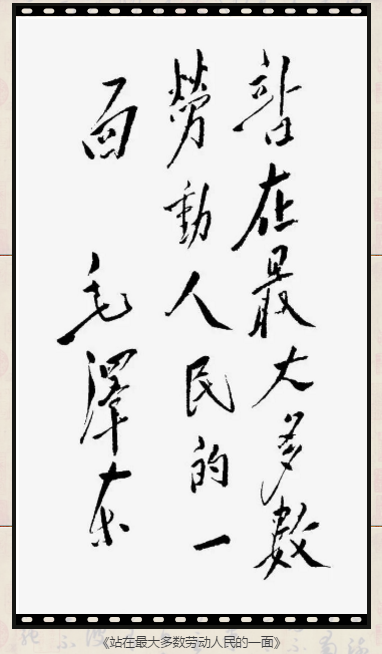 站在最大多數
勞動人民的一
面
毛澤东
《站在最大多数劳动人民的一面》